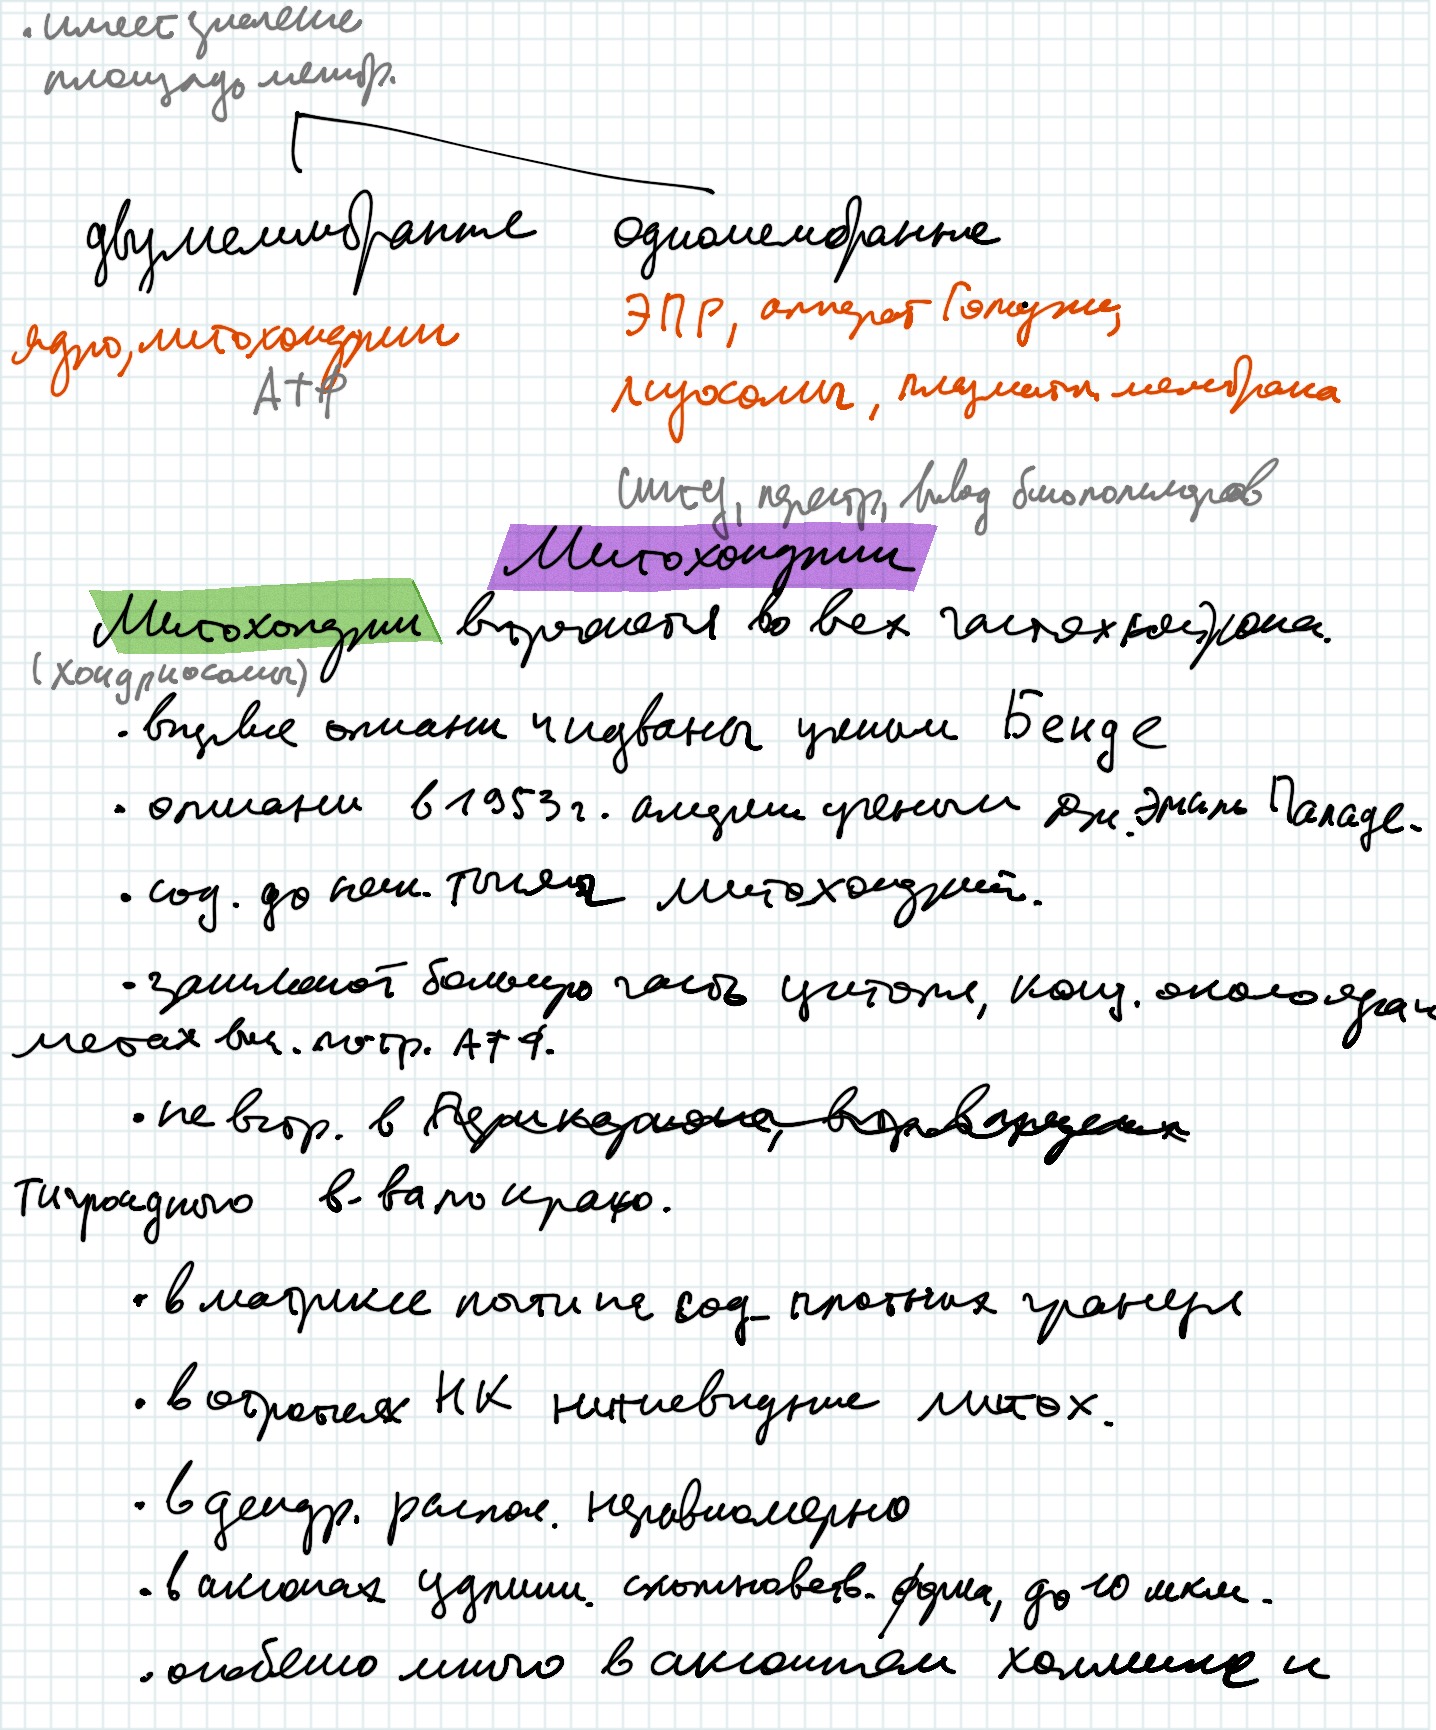 · имеет значение
площадь мембр.
двумембранные одномембранные
ядро, митохондрии
АТФ
ЭПР, аппарат Гольджи,
лизосомы, плазматич. мембрана
синтез, перестр, вывод биополимеров
Митохондрии
Митохондрии встречаются во всех частях нейрона.
(хондриосомы)
· впервые описаны учеными Бенде
· описаны в 1953 г. америк ученым Дж. Эмиль Паладе.
· сод. до неск. тысяч митохондрий.
· занимают большую часть цитопл, конц. около ядра и
местах выс. потр. АТФ.
· не встр. в
тигроидного в-ва по краю.
· в матриксе почти не сод. плотных гранул
· в отростках НК нитиевидные митох.
· в дендр. распол. неравномерно
· в аксонах удлинн. форма, до 10 мкм.
· особенно много в аксонном холмике и